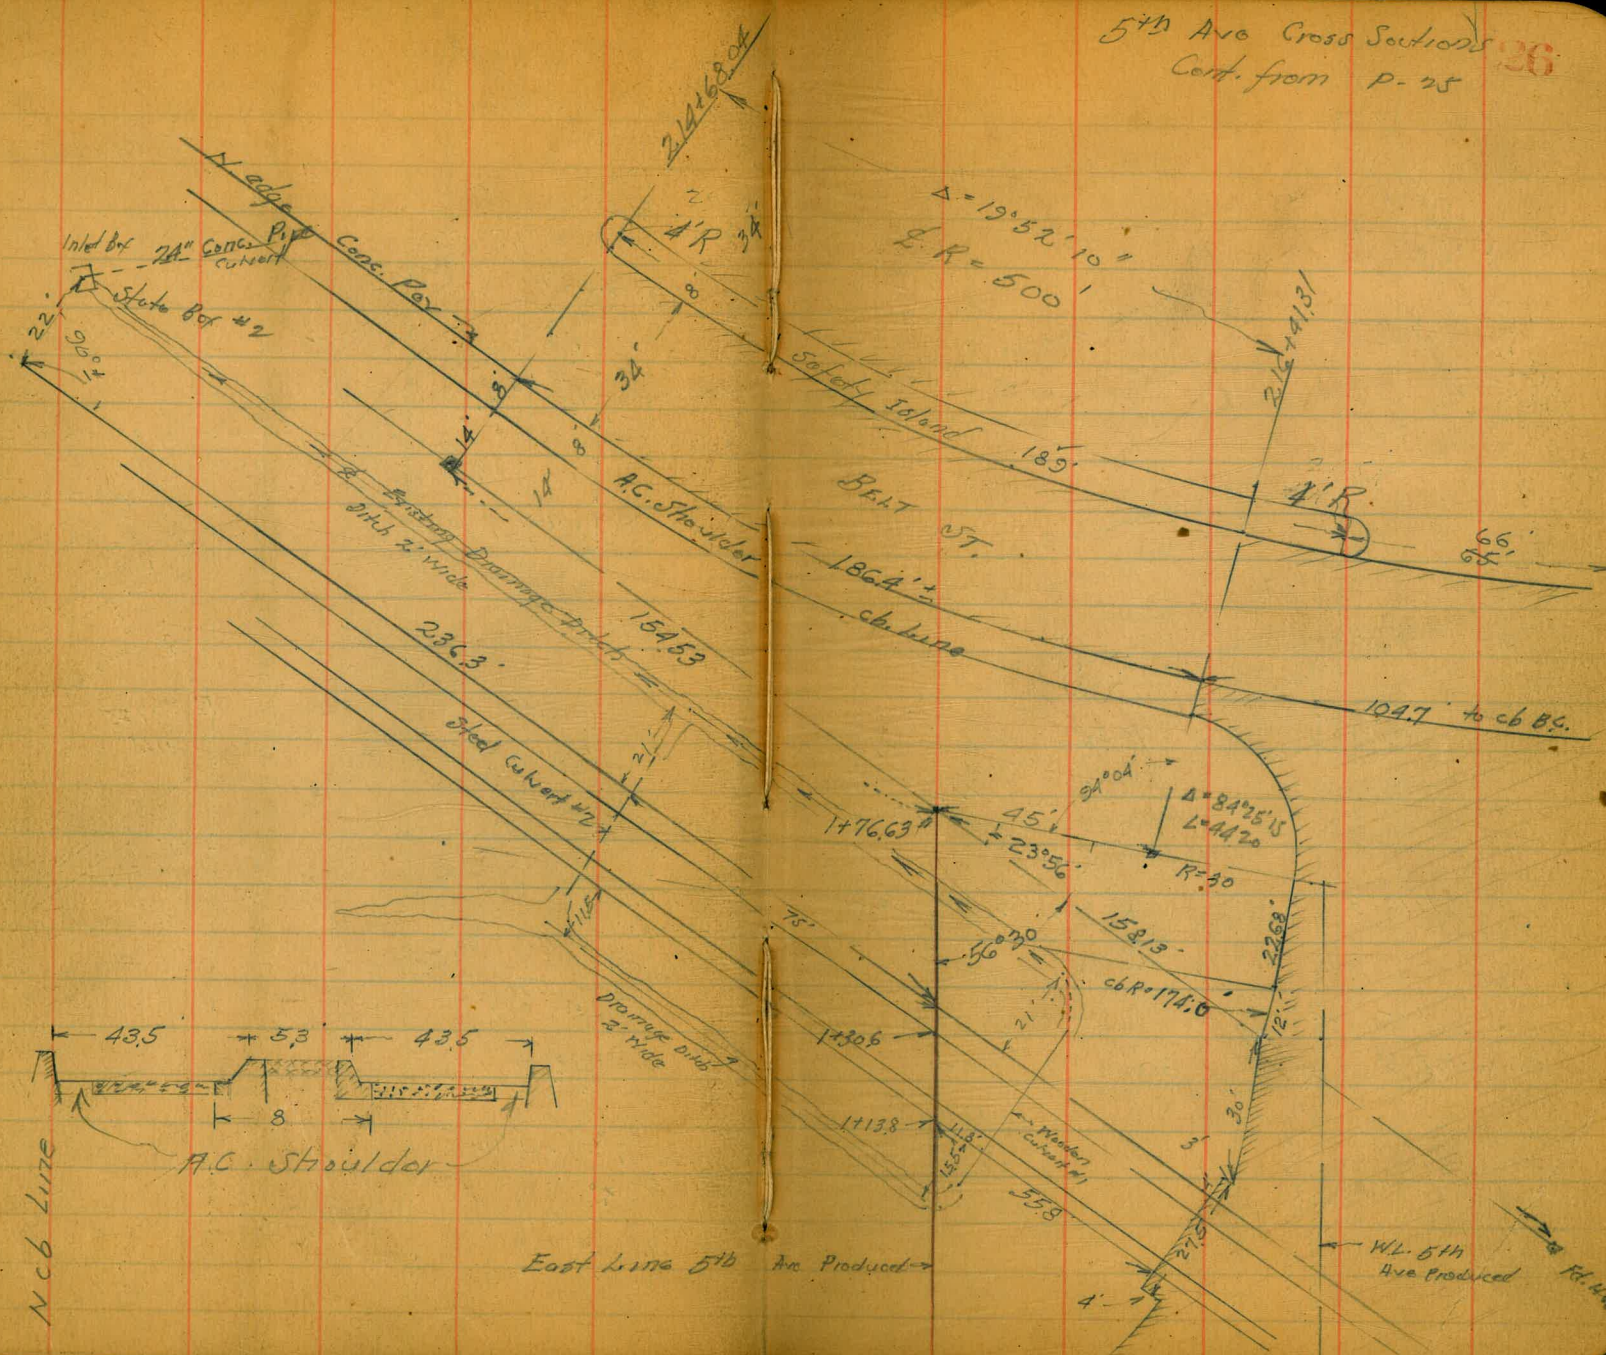 5th Ave Cross Sections
26
Cont. from P-25
214+68.04
N. edge Conc. Pav.
Inlet Box
24" Conc. Pipe
Culvert
State Box #2
22'
90°±
4'R
34'
8
34'
8
14'
8
14'
Δ=19°52'10"
℄ R=500'
216+41.31
Safety Island
189'
4'R.
66'
65'
A.C. Shoulder
BELT
ST.
186.4'±
cb. Line
104.7' to cb B.C.
Existing Drainage Ditch
Ditch 2' Wide
154.53
236.3'
Steel Culvert #2
21'
11.5
75'
1+76.63
45'
94°04'
23°56'
Δ=84°25'15
L=44.20
R=30
158.13'
22.68'
56°30'
cb R=174.0'
12'
21'
1+30.6
Drainage Ditch
2' Wide
1+13.8
11.8'
15.5
Wooden
Culvert #1
55.8'
30'
3'
27.5
4'
43.5
5.3
43.5
8
A.C. Shoulder
N cb Line
East Line 5th Ave Produced
W.L. 5th
Ave Produced
Fd.